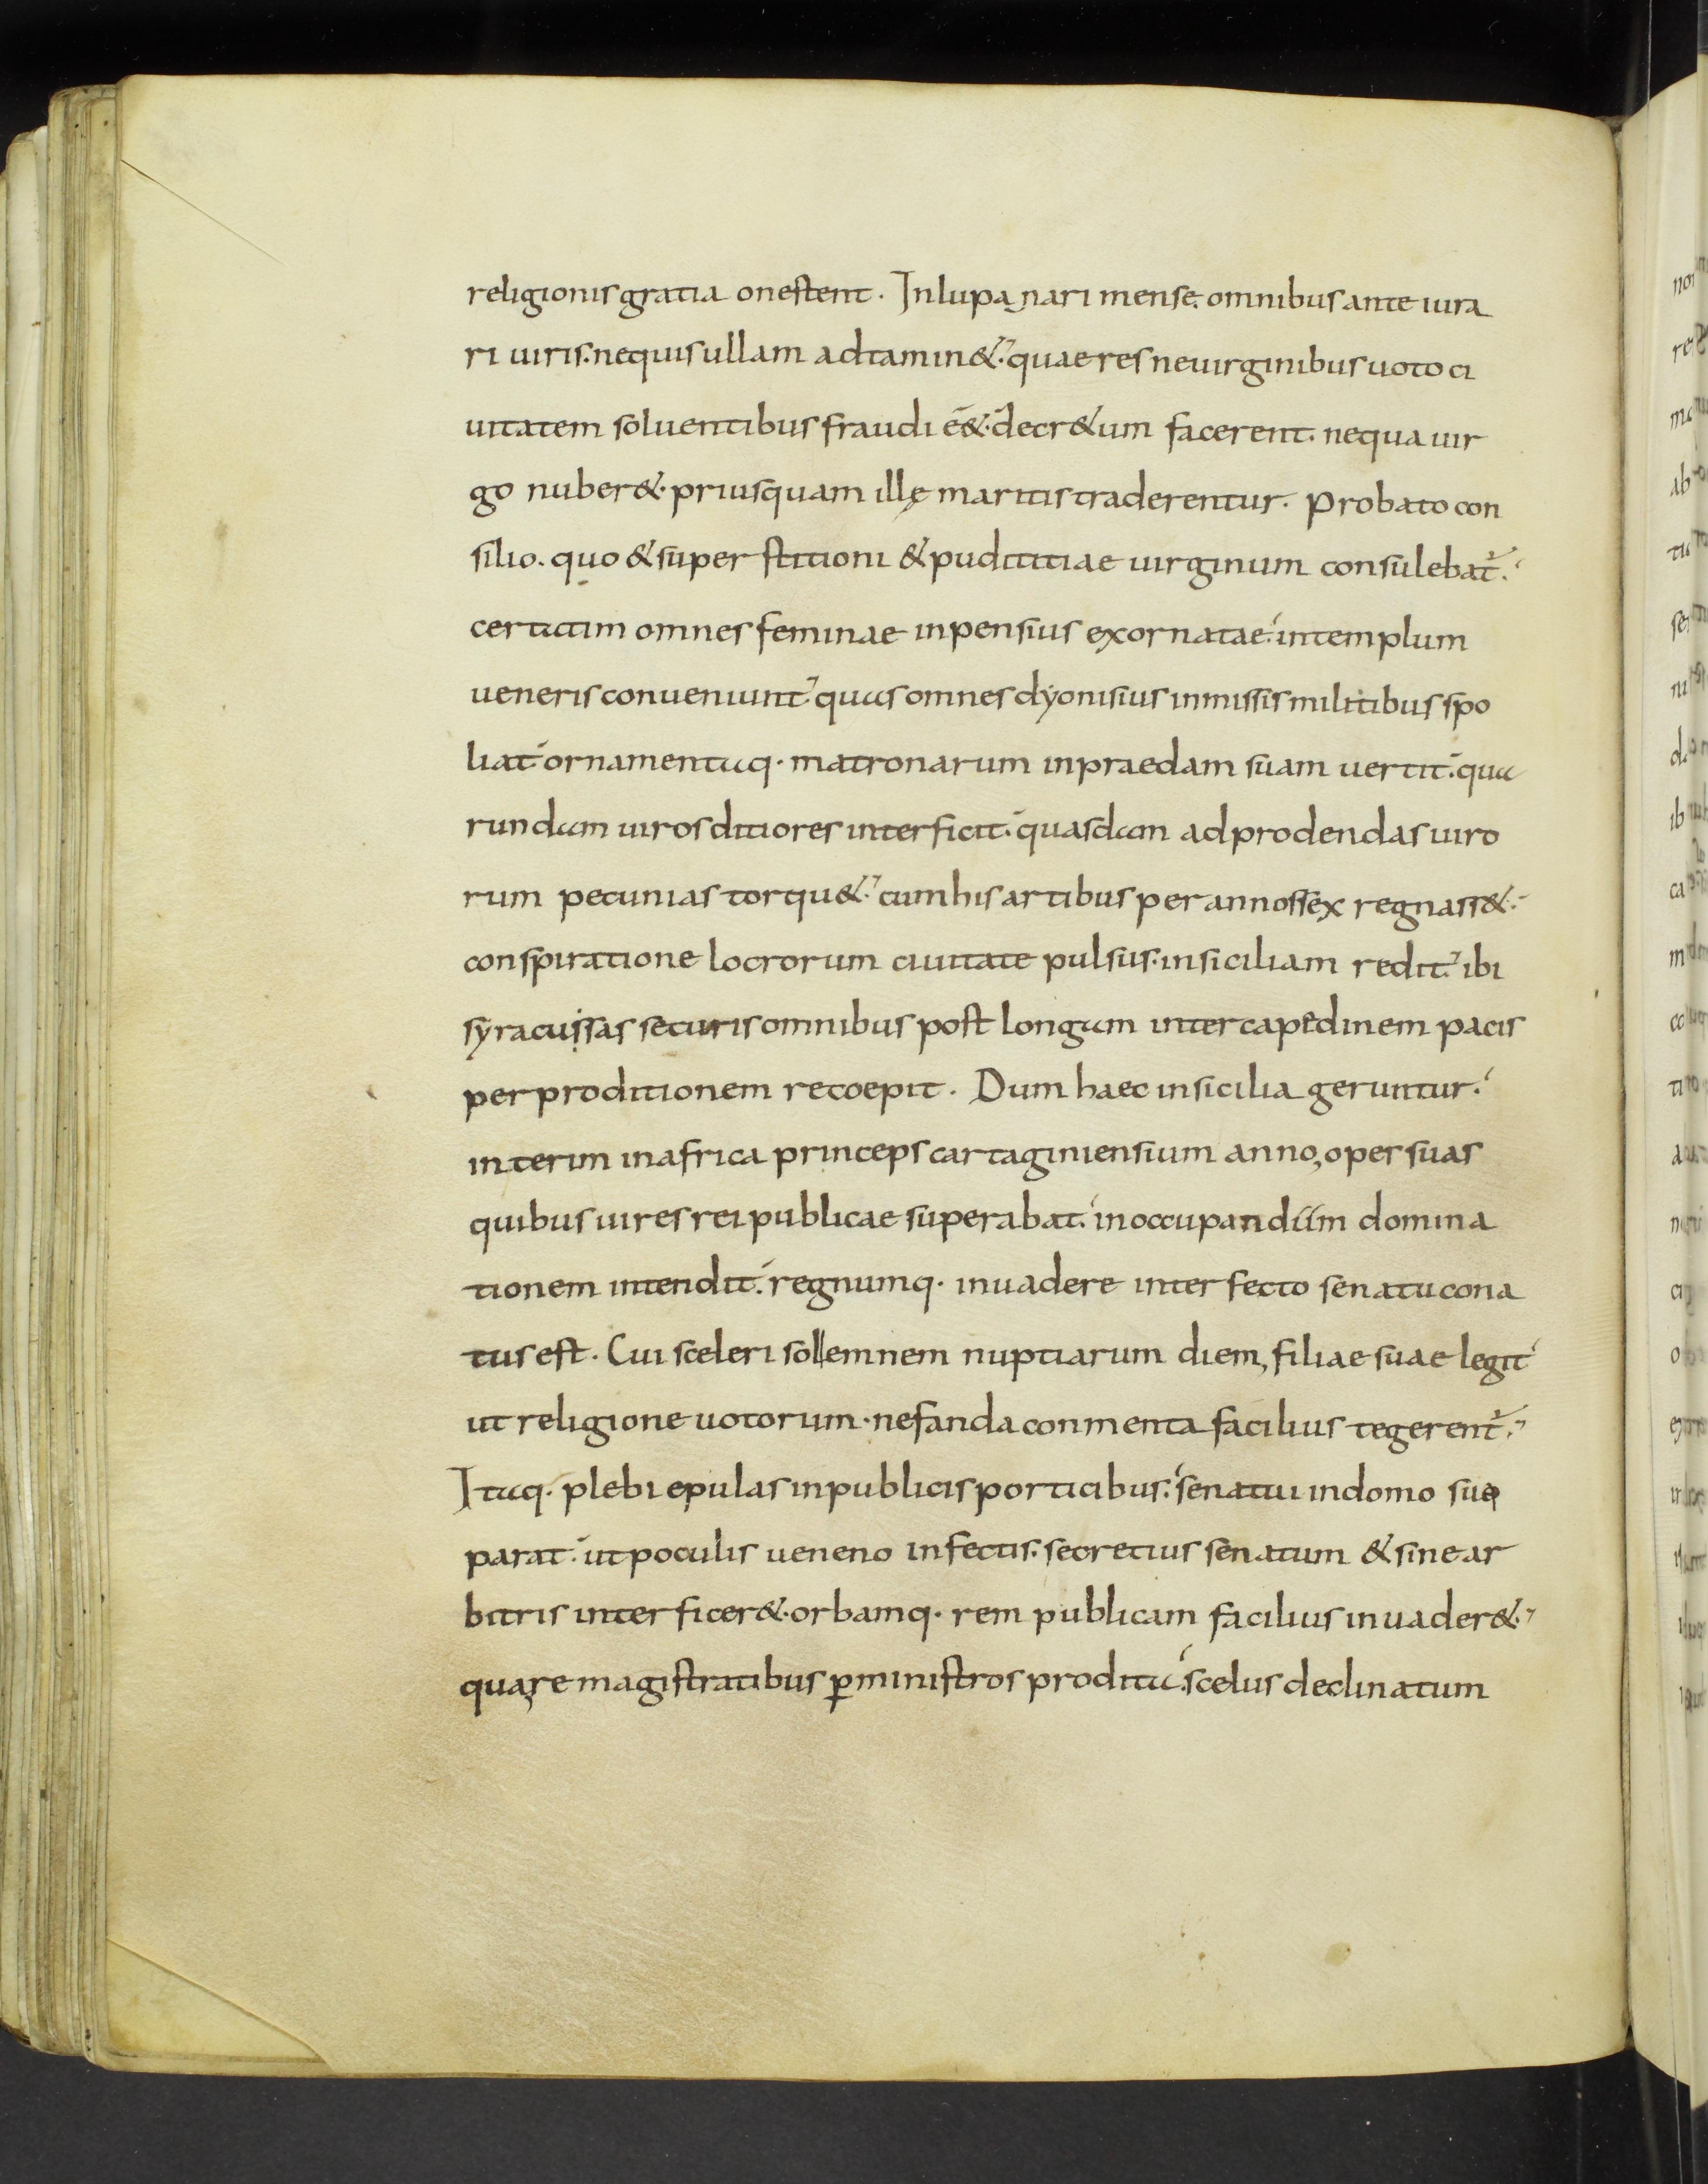 religionis gratia onestent. In lupa nari mense. omnibus ante iura
ri uiris. nequis ullam adtamin&. quae res ne uirginibus uoto ci
uitatem soluentibus fraudi e&. decr&um facerent. nequa uir
go nuber&. priusquam illę maritis traderentur. Probato con
silio. quo & super stitioni & pudititiae uirginum consulebat̄.
certatim omnes feminae inpensius exornatae. in templum
ueneris conueniunt. quas omnes dyonisius inmissis militibus spo
liat. ornamentaq. matronarum in praedam suam uertit. qua
rundam uiros ditiores interficit. quasdam ad prodendas uiro
rum pecunias torqu&. cum his artibus per annos sex regnass&.
conspiratione locrorum ciuitate pulsus. in siciliam redit. ibi
syracussas securis omnibus post longam intercapedinem pacis
per proditionem recoepit. Dum haec in sicilia geruntur.
interim in africa princeps cartaginiensium anno, oper suas
quibus uires rei publicae superabat. in occupandiim domina
tionem intendit. regnumq. inuadere interfecto senatu cona
tus est. Cui sceleri sollemnem nuptiarum diem, filiae suae legit
ut religione uotorum. nefanda conmenta facilius tegerent̄.
Itaq. plebi epulas in publicis porticibus. senatui in domo sua
parat. ut poculis ueneno infectis. secretius senatum & sine ar
bitris interficer&. orbamq. rem publicam facilius inuader&.
quare magistratibus ꝑ ministros prodita. scelus declinatum